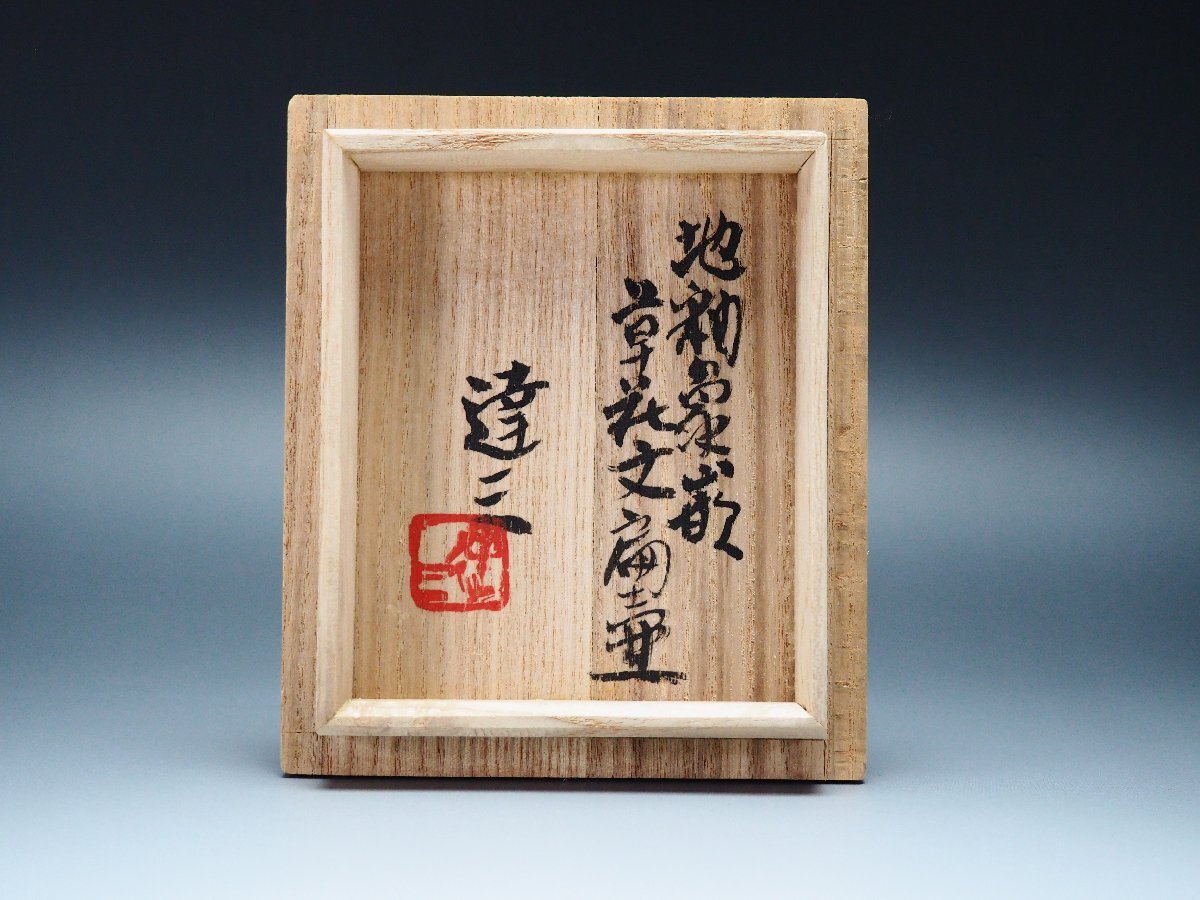 地釉象嵌
草花文扁壷
達三